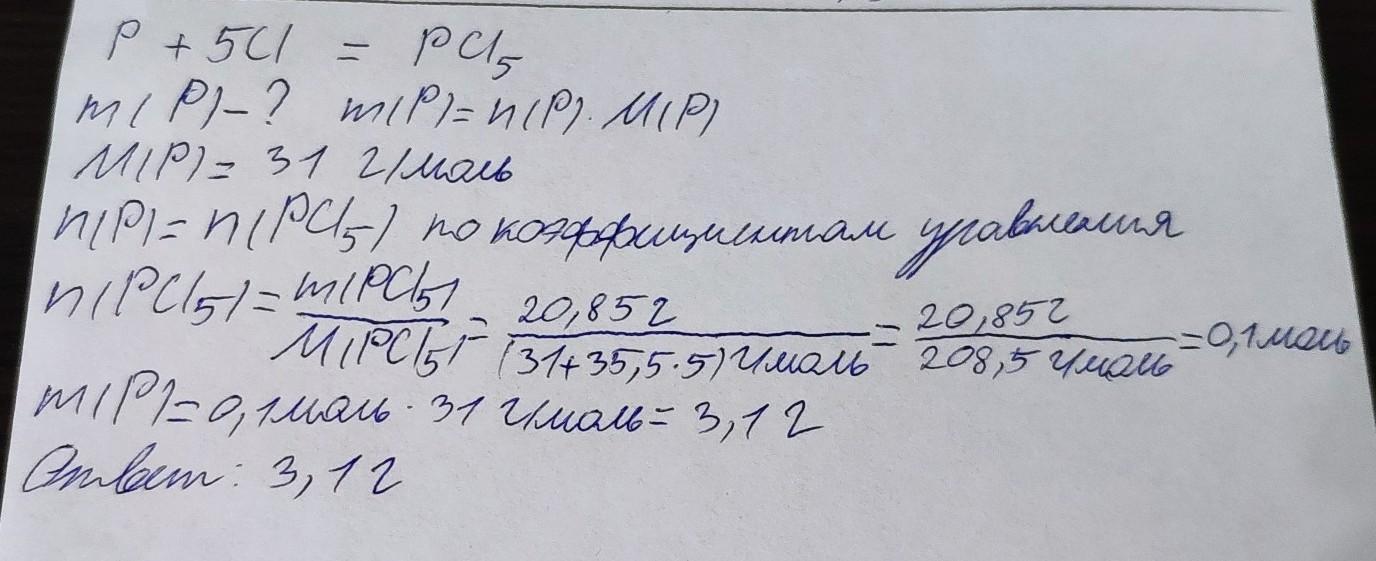 P + 5Cl = PCl₅
m(P)-? m(P)=n(P)·M(P)
M(P)= 31 г/моль
n(P)=n(PCl₅) по коэффициентам уравнения
n(PCl₅)= m(PCl₅)/M(PCl₅) = 20,85г/(31+35,5·5)г/моль = 20,85г/208,5 г/моль =0,1моль
m(P)=0,1моль·31 г/моль= 3,1 г
Ответ: 3,1 г